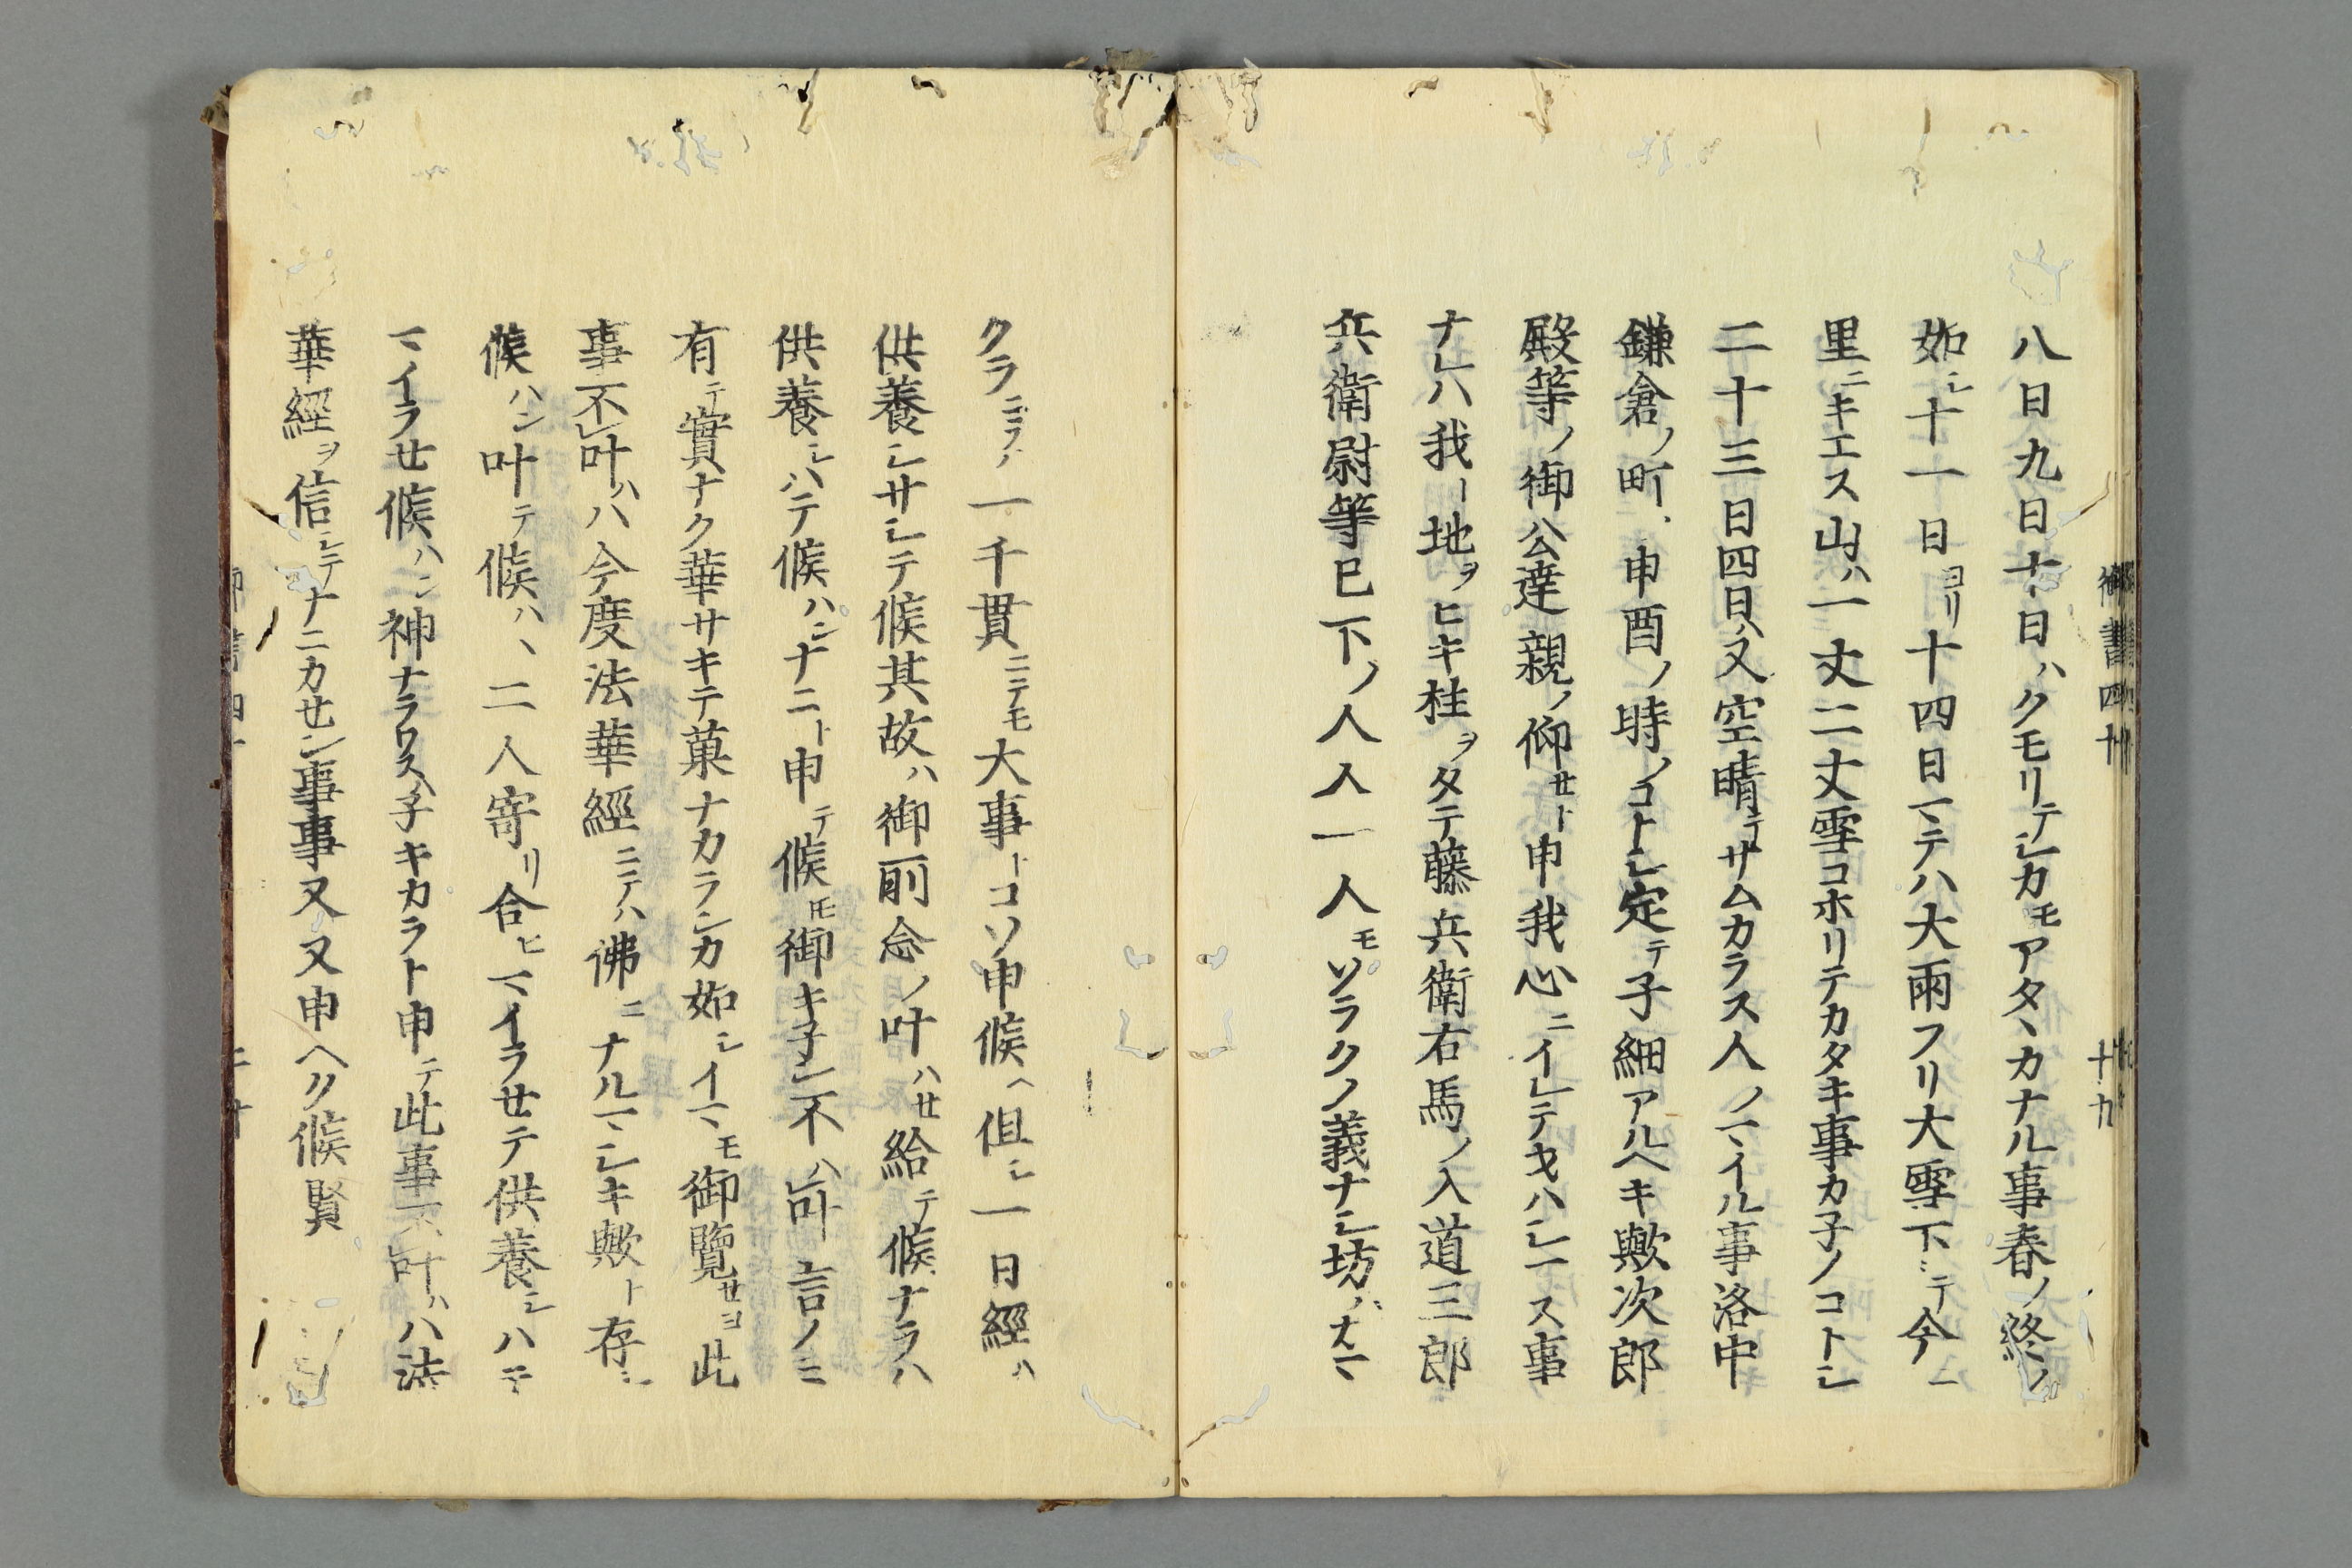 八日九日十日ハクモリテシカモアタヽカナル事春ノ終ノ
如シ十一日ヨリ十四日マテハ大雨フリ大雪下テ今ニ
里ニキエス山ハ一丈二丈雪コホリテカタキ事カ子ノコトシ
二十三日四日又空晴テサムカラス人ノマイル事洛中
鎌倉ノ町ノ申酉ノ時ノコトシ定テ子細アルヘキ歟次郎
殿等ノ御公達親ノ仰セト申我心ニイレテヲハシマス事
ナレハ我ト地ヲヒキ柱ヲタテ藤兵衛右馬ノ入道三郎
兵衛尉等已下ノ人人一人モソラクノ義ナシ坊ハカマ
クラニテハ一千貫ニテモ大事トコソ申候ヘ但シ一日經ハ
供養シサシテ候其故ハ御所念ノ叶ハセ給テ候ナラハ
供養シハテ候ハンナニト申テ候トモ御キ子ン不叶ハ言ノミ
有テ實ナク華サキテ菓ナカランカ如シイマモ御覽セヨ此
事不叶ハ今度法華經ニテハ佛ニナルマシキ歟ト存シ
候ハン叶テ候ハヽ二人寄リ合ヒマイラセテ供養シハテ
マイラセ候ハン神ナラワスハ子キカラト申テ此事不叶ハ法
華經ヲ信シテナニカセン事事又又申ヘク候賢
御書四十
十九